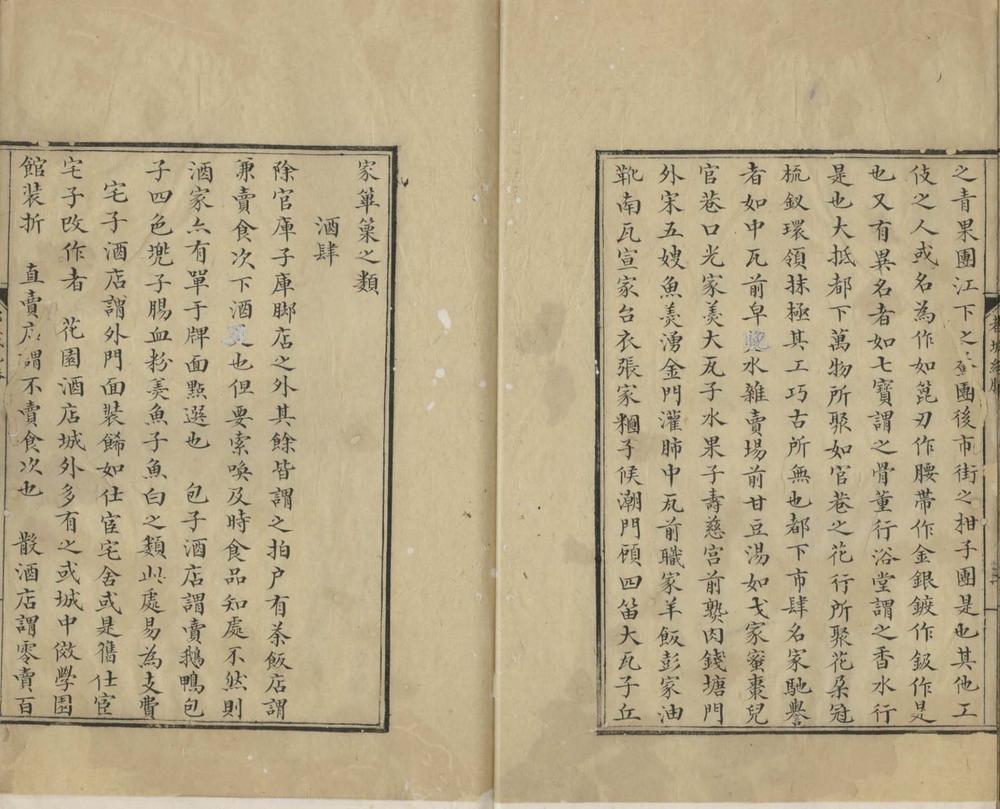 之青果團江下之鮝團後市街之柑子團是也其他工
伎之人或名為作如篦刃作腰帶作金銀鍍作鈒作是
也又有異名者如七寶謂之骨董行浴堂謂之香水行
是也大抵都下萬物所聚如官巷之花行所聚花朶冠
梳釵環領抹極其工巧古所無也都下市肆名家馳譽
者如中瓦前皁兒水雜賣場前甘豆湯如戈家蜜棗兒
官巷口光家羮大瓦子水果子壽慈宫前熟肉錢塘門
外宋五嫂魚羮湧金門灌肺中瓦前職家羊飯彭家油
靴南瓦宣家台衣張家糰子候潮門顧四笛大瓦子丘
家篳篥之類
酒肆
除官庫子庫脚店之外其餘皆謂之拍户有茶飯店謂
兼賣食次下酒是也但要索喚及時食品知處不然則
酒家亦有單于牌面點選也 包子酒店謂賣鵝鴨包
子四色兠子腸血粉羮魚子魚白之類此處易為支費
宅子酒店謂外門面裝飾如仕宦宅舍或是舊仕宦
宅子改作者 花園酒店城外多有之或城中倣學園
館裝折 直賣店謂不賣食次也 散酒店謂零賣百